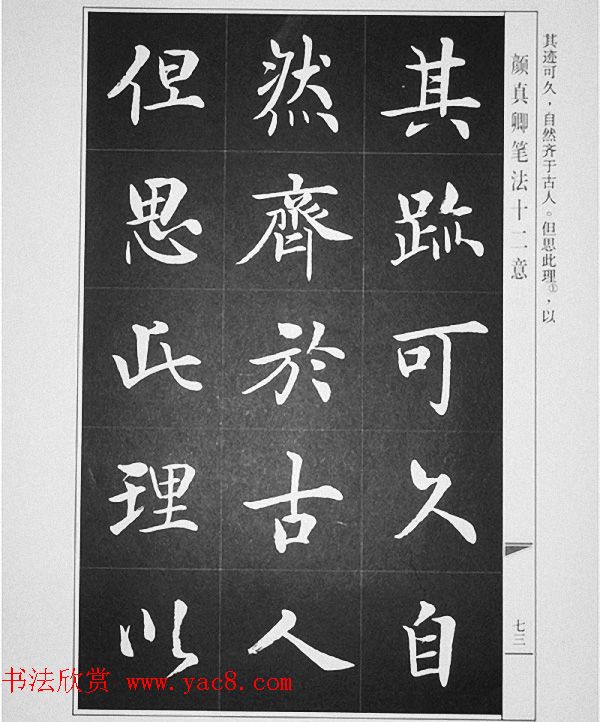 其迹可久，自然齐于古人。但思此理①，以
颜真卿笔法十二意
其跡可久自
然齊於古人
但思此理以
七三
书法欣赏 www.yac8.com